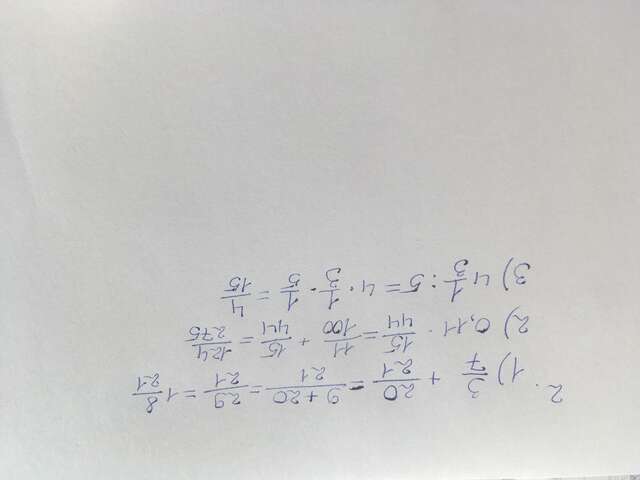 2.
1) 3/7 + 20/21 = (9+20)/21 = 29/21 = 1 8/21
2) 0,11 · 15/44 = 11/100 + 15/44 = 124/275
3) 4 1/3 : 5 = 4 · 1/3 · 1/5 = 4/15